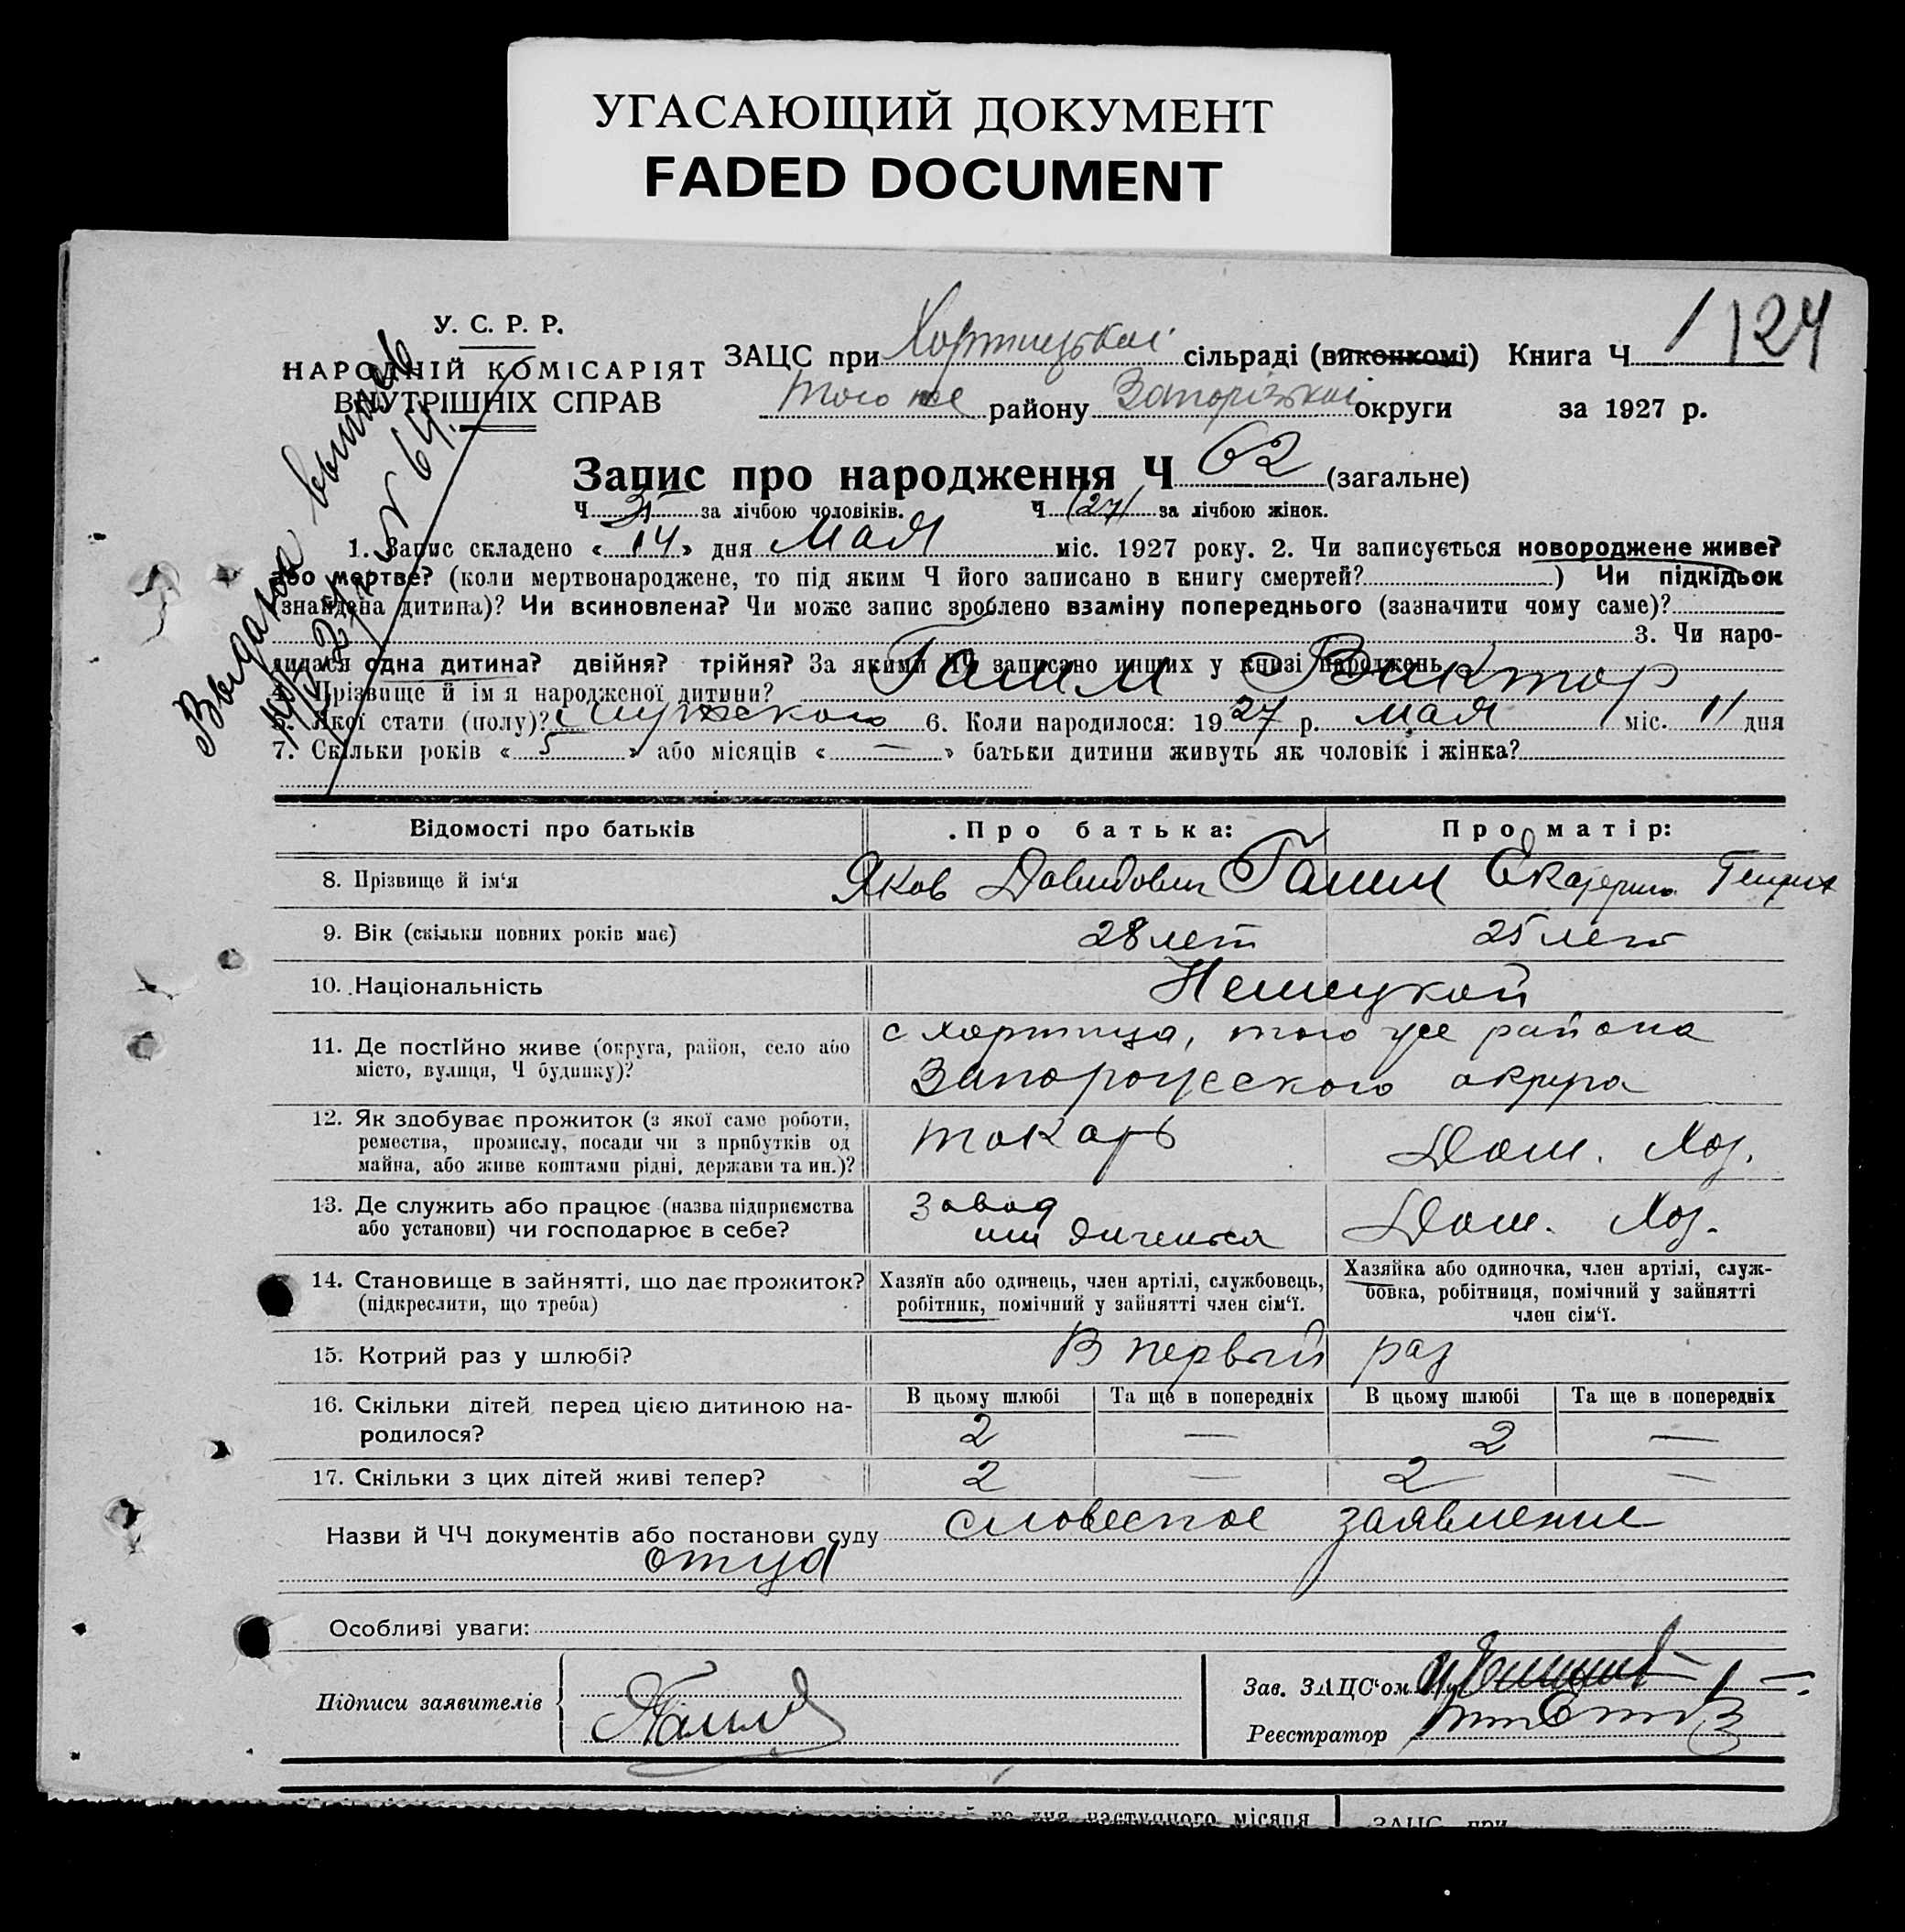 УГАСАЮЩИЙ ДОКУМЕНТ
FADED DOCUMENT
У. С. Р. Р.
НАРОДНІЙ КОМІСАРІЯТ
ВНУТРІШНІХ СПРАВ
ЗАЦС при Хортицькоі сільраді (виконкомі) Книга Ч 1 124
того же району Запорізькоі округи за 1927 р.
Выдана выпись
N 64.
Запис про народження Ч 62 (загальне)
Ч 35 за лічбою чоловіків. Ч (27) за лічбою жінок.
1. Запис складено « 14 » дня Мая міс. 1927 року. 2. Чи записується новороджене живе?
або мертве? (коли мертвонароджене, то під яким Ч його записано в книгу смертей? ) Чи підкідьок
(знайдена дитина)? Чи всиновлена? Чи може запис зроблено взаміну попереднього (зазначити чому саме)?
3. Чи наро-
дилася одна дитина? двійня? трійня? За якими ЧЧ записано инших у книзі народжень
4. Прізвище й ім я народженої дитини? Гамм Виктор
5. Якої стати (полу)? Мужского 6. Коли народилося: 19 27 р. мая міс. 11 дня
7. Скільки років « 5 » або місяців « — » батьки дитини живуть як чоловік і жінка?
Відомості про батьків Про батька: Про матір:
8. Прізвище й ім‘я Яков Давидович Гамм Екатерина Генрих
9. Вік (скільки повних років має) 28 лет 25 лет
10. Національність Немецкой
11. Де постІйно живе (округа, район, село або с Хортица, того же района
місто, вулиця, Ч будинку)? Запорожского округа
12. Як здобуває прожиток (з якої саме роботи, токарь Дом. Хоз.
ремества, промислу, посади чи з прибутків од
майна, або живе коштами рідні, держави та ин.)?
13. Де служить або працює (назва підприємства завод Дом. Хоз.
або установи) чи господарює в себе? им Энгельса
14. Становище в зайнятті, що дає прожиток? Хазяїн або одинець, член артілі, службовець, Хазяйка або одиночка, член артілі, служ-
(підкреслити, що треба) робітник, помічний у зайнятті член сім‘ї. бовка, робітниця, помічний у зайнятті
член сім‘ї.
15. Котрий раз у шлюбі? В первый раз
16. Скільки дітей перед цією дитиною на- В цьому шлюбі Та ще в попередніх В цьому шлюбі Та ще в попередніх
родилося? 2 — 2 —
17. Скільки з цих дітей живі тепер? 2 — 2 —
Назви й ЧЧ документів або постанови суду словесное заявление
отца
Особливі уваги:
Підписи заявителів Гамм
Зав. ЗАЦС‘ом
Реєстратор
дня наступного місяця ЗАЦС при